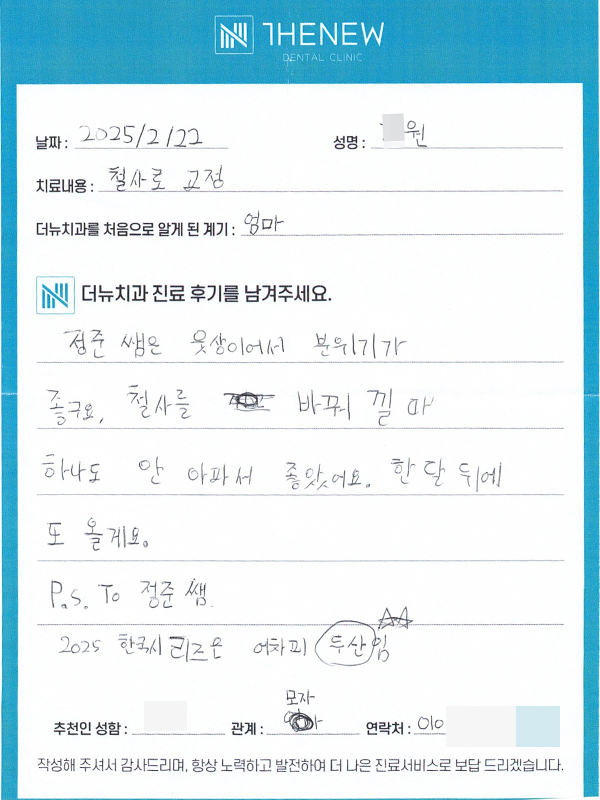 THENEW
DENTAL CLINIC
날짜 : 2025/2/22 성명 : 원
치료내용 : 철사로 교정
더뉴치과를 처음으로 알게 된 계기 : 엄마
더뉴치과 진료 후기를 남겨주세요.
정준 쌤은 웃상이어서 분위기가
좋구요, 철사를 바꿔 낄 때
하나도 안 아파서 좋았어요. 한 달 뒤에
또 올게요.
P.S. To 정준 쌤.
2025 한국시리즈은 어차피 두산임
모자
추천인 성함 : 관계 : 연락처 : 010
작성해 주셔서 감사드리며, 항상 노력하고 발전하여 더 나은 진료서비스로 보답 드리겠습니다.